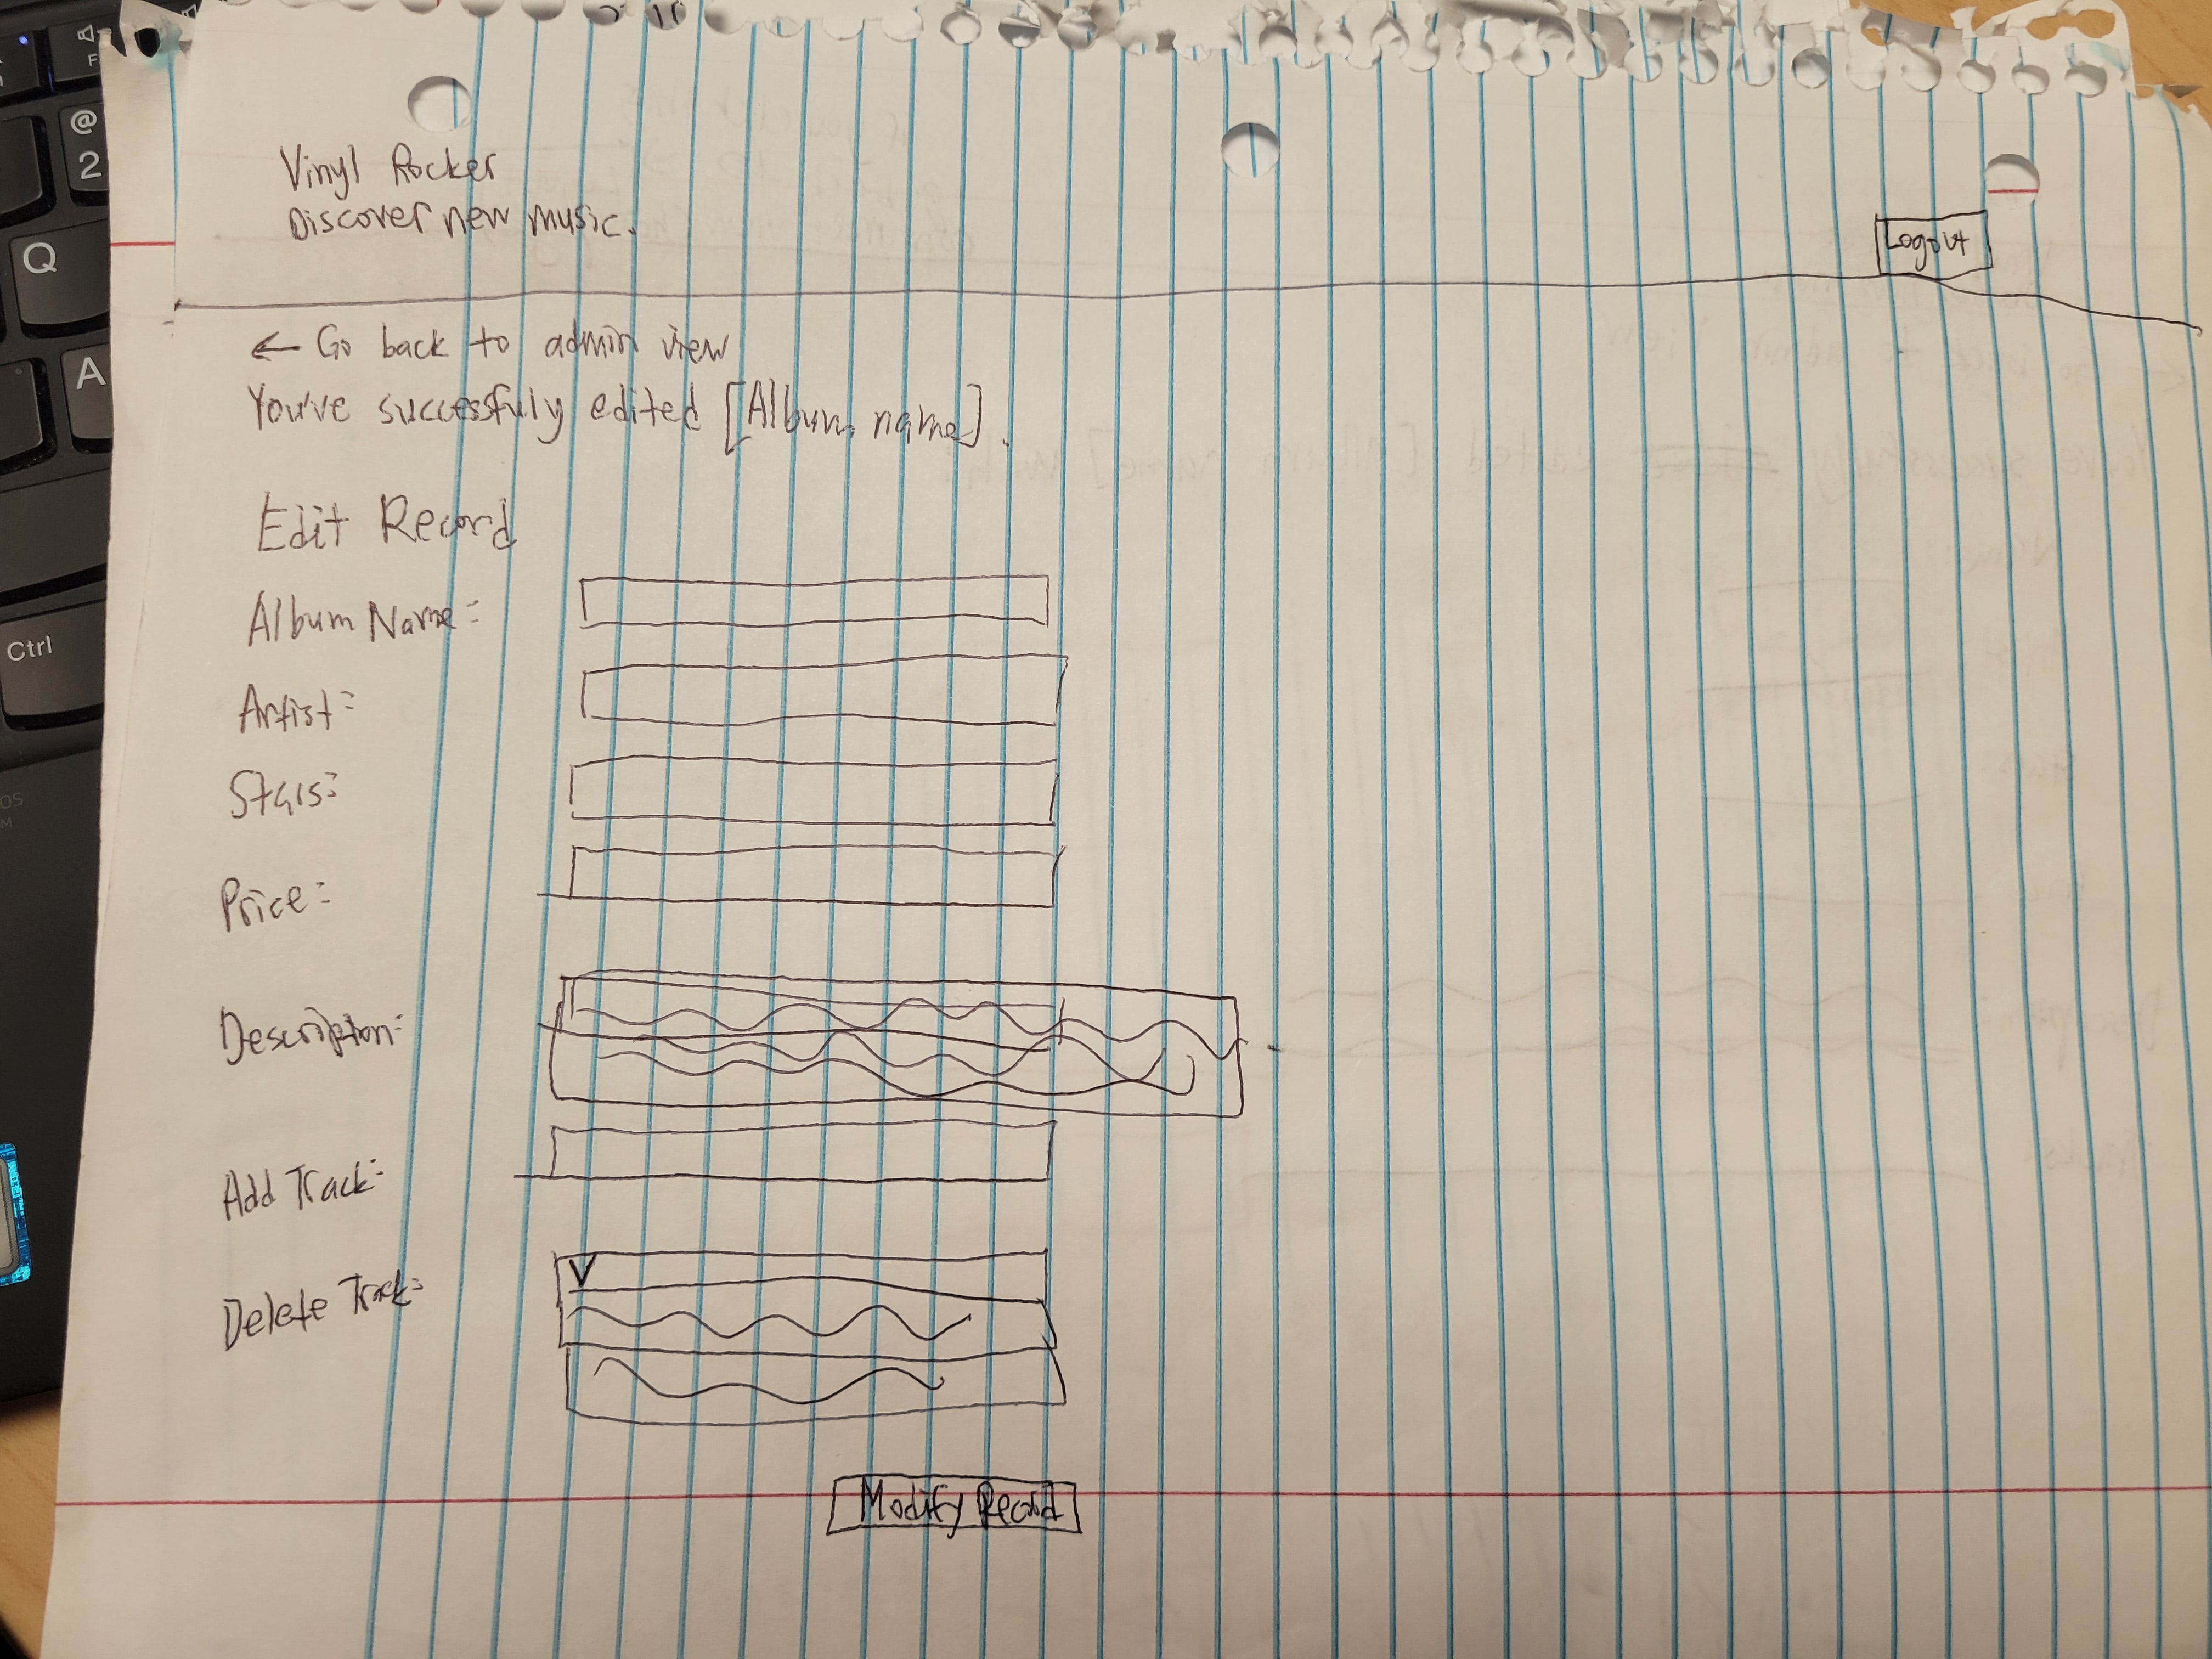 Vinyl Rocker
Discover new music.
Logout
← Go back to admin view
You've successfully edited [Album name].
Edit Record
Album Name:
Artist:
Stars:
Price:
Description:
Add Track:
Delete Track:
V
Modify Record
@
2
Q
A
Ctrl
F